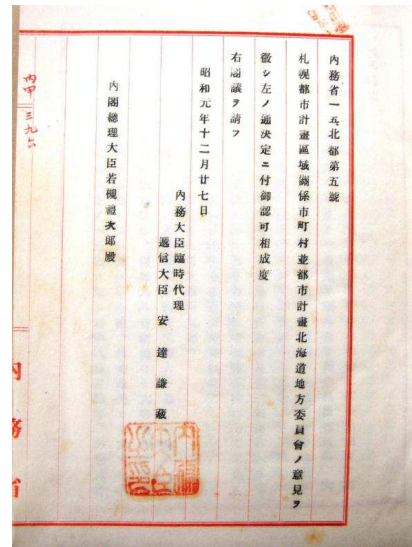 內務省一五北都第五號
札幌都市計畫區域關係市町村並都市計畫北海道地方委員會ノ意見ヲ
徵シ左ノ通決定ニ付御認可相成度
右閣議ヲ請フ
昭和元年十二月廿七日
內務大臣臨時代理
遞信大臣 安達謙藏
內閣總理大臣若槻禮次郎殿
內甲 三九六
內務省